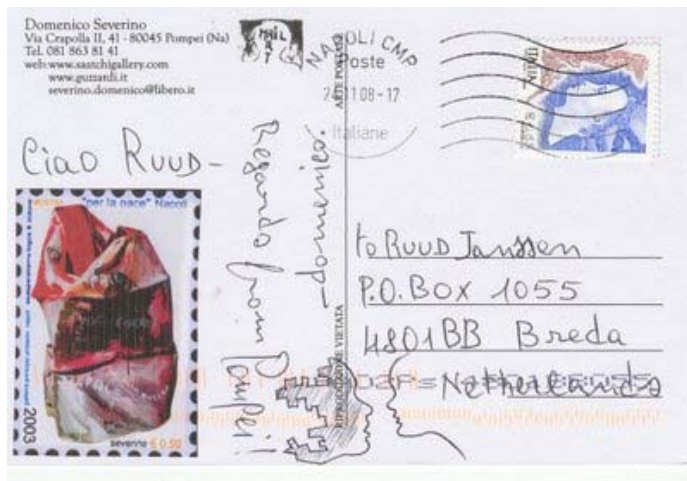 Domenico Severino
Via Crapolla II, 41 - 80045 Pompei (Na)
Tel. 081 863 81 41
web: www.saatchigallery.com
www.guzzardi.it
severino.domenico@libero.it
MAIL
ART
NAPOLI CMP
Poste
24 11 08-17
Italiane
Ciao RUUD-
Regards from Pompei!
-domenico.
"per la pace" Napoli
2003
severino € 0,50
ARTE POSTALE
RIPRODUZIONE VIETATA
to RUUD Janssen
P.O. BOX 1055
4801BB Breda
Netherlands